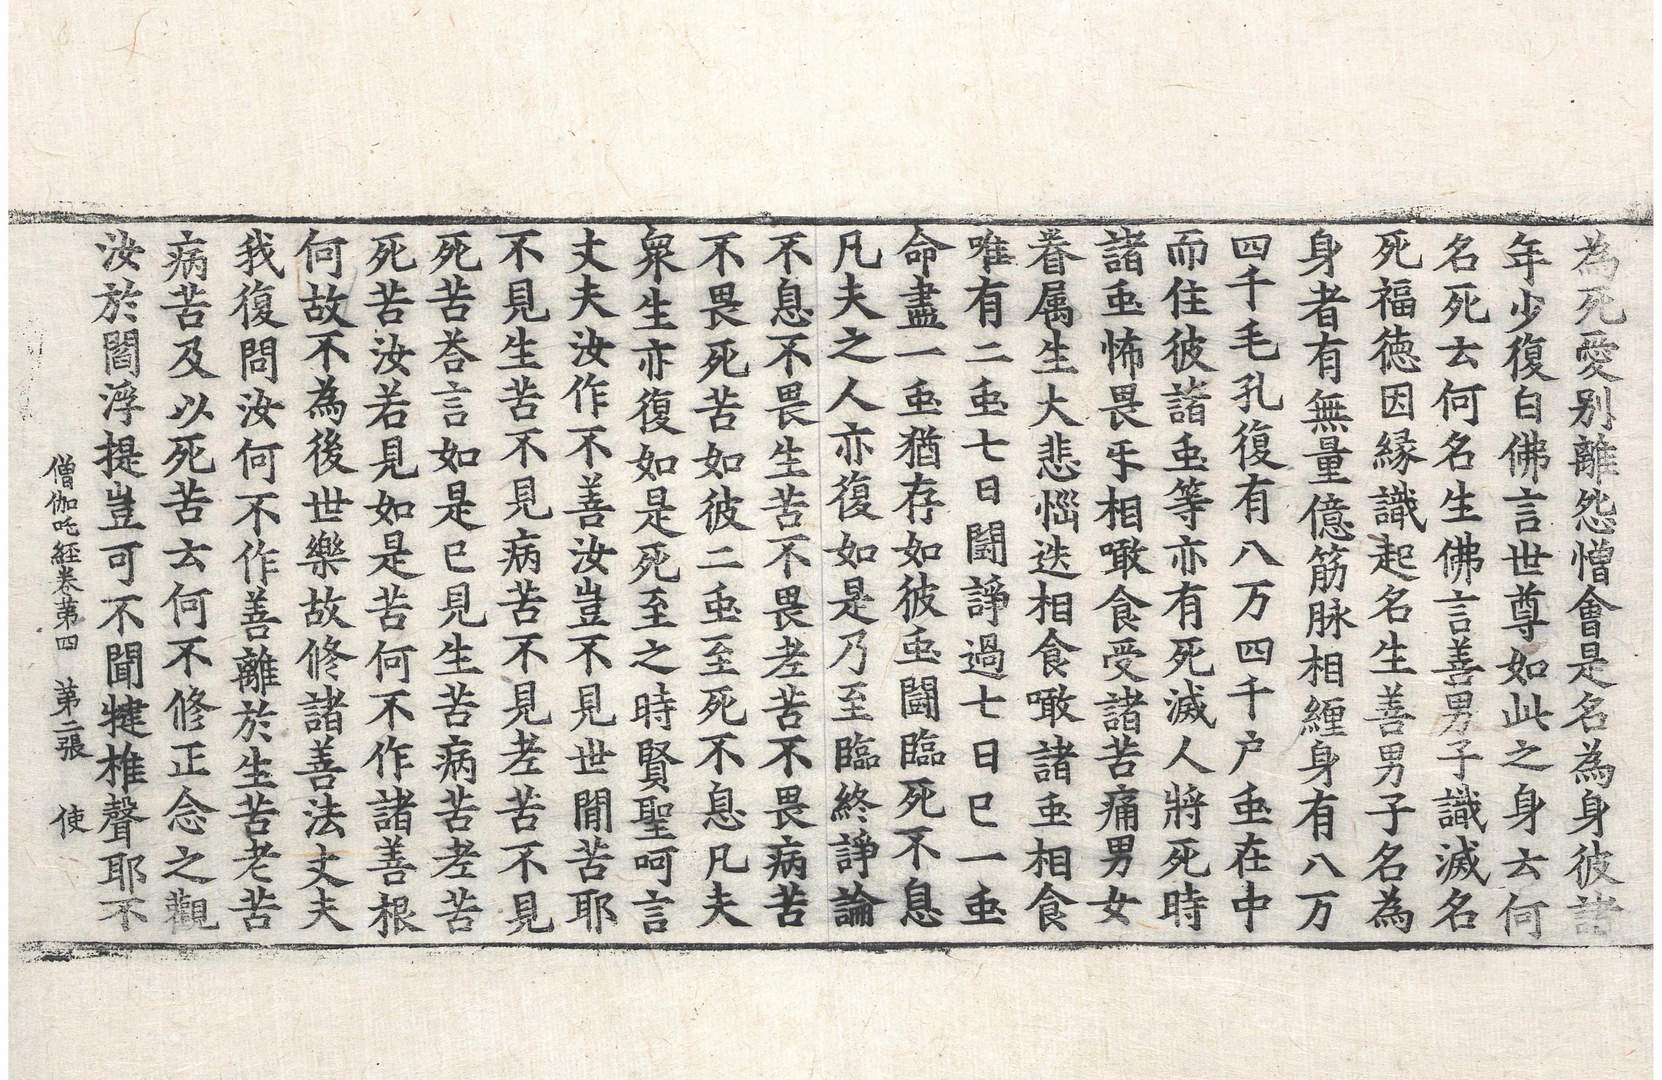 為死愛别離怨憎會是名為身彼諸
年少復白佛言世尊如此之身云何
名死云何名生佛言善男子識滅名
死福德因緣識起名生善男子名為
身者有無量億筋脉相纏身有八万
四千毛孔復有八万四千户䖝在中
而住彼諸䖝等亦有死滅人將死時
諸䖝怖畏㸦相噉食受諸苦痛男女
眷属生大悲惱迭相食噉諸䖝相食
唯有二䖝七日鬪諍過七日已一䖝
命盡一䖝猶存如彼䖝鬪臨死不息
凡夫之人亦復如是乃至臨終諍論
不息不畏生苦不畏老苦不畏病苦
不畏死苦如彼二䖝至死不息凡夫
衆生亦復如是死至之時賢聖呵言
丈夫汝作不善汝豈不見世閒苦耶
不見生苦不見病苦不見老苦不見
死苦荅言如是已見生苦病苦老苦
死苦汝若見如是苦何不作諸善根
何故不為後世樂故修諸善法丈夫
我復問汝何不作善離於生苦老苦
病苦及以死苦云何不修正念之觀
汝於閻浮提豈可不聞揵椎聲耶不
僧伽吒經卷苐四 苐二張 使